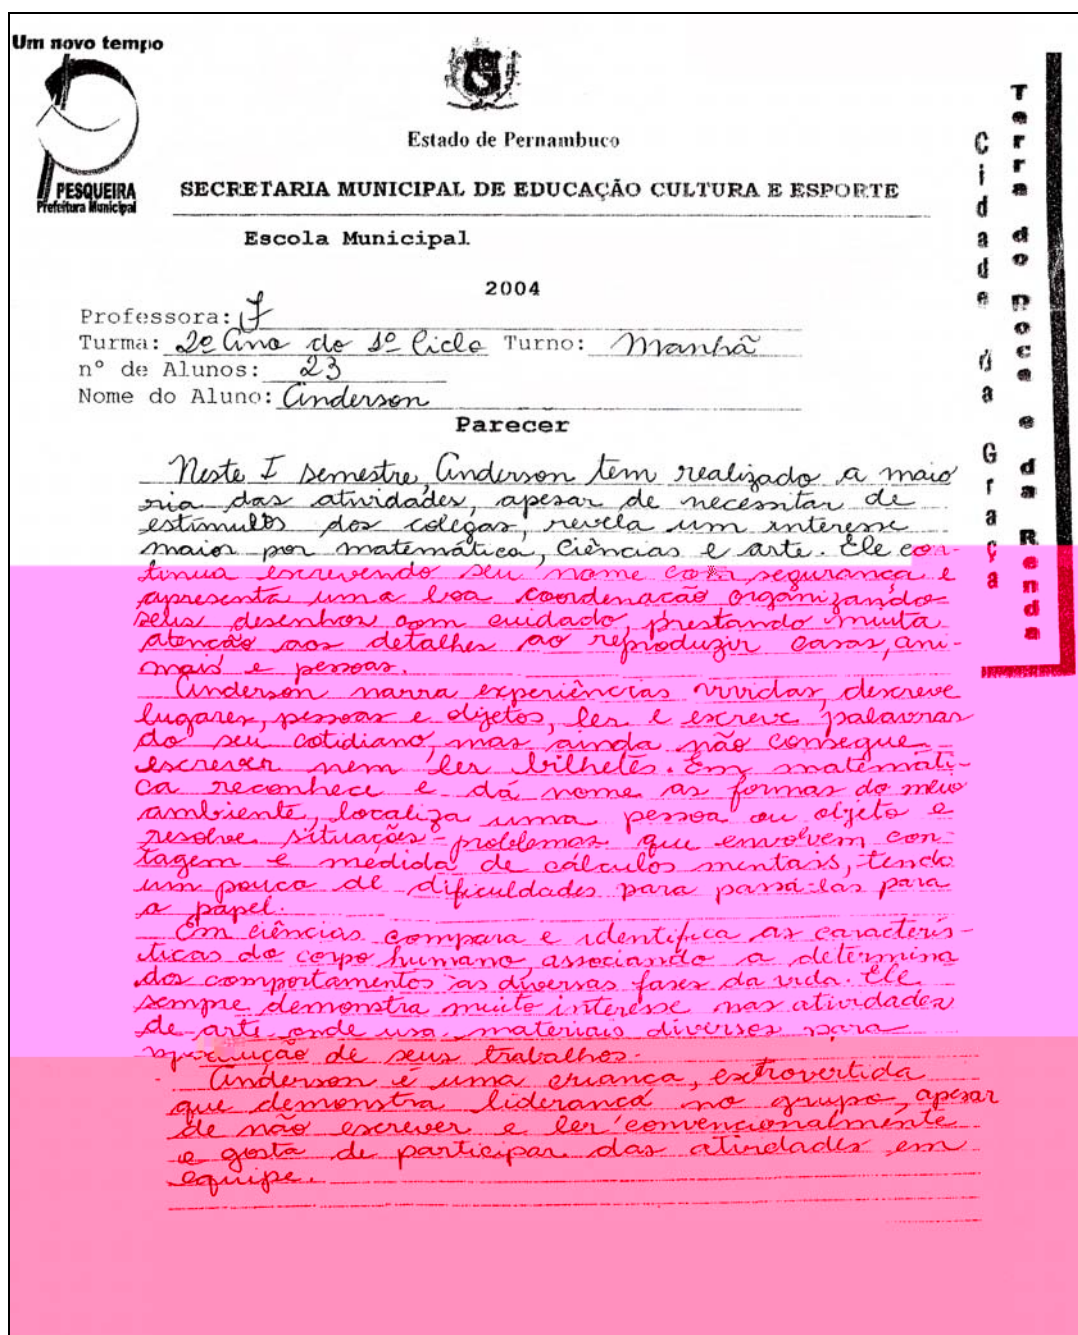 Um novo tempo
PESQUEIRA
Prefeitura Municipal
Estado de Pernambuco
SECRETARIA MUNICIPAL DE EDUCAÇÃO CULTURA E ESPORTE
Escola Municipal
2004
Professora: J
Turma: 2º Ano do 1º Ciclo Turno: Manhã
nº de Alunos: 23
Nome do Aluno: Anderson
Parecer
Neste I semestre, Anderson tem realizado a maio
ria das atividades, apesar de necessitar de
estimulos dos colegas, revela um interesse
maior por matemática, Ciências e arte. Ele con-
tinua escrevendo seu nome com segurança e
apresenta uma boa coordenação organizando
seus desenhos com cuidado, prestando muita
atenção aos detalhes ao reproduzir casas, ani-
mais e pessoas.
Anderson narra experiências vividas, descreve
lugares, pessoas e objetos, ler e escreve palavras
do seu cotidiano, mas ainda não consegue
escrever nem ler bilhetes. Em matemáti-
ca reconhece e dá nome as formas do meio
ambiente, localiza uma pessoa ou objeto e
resolve situações-problemas que envolvem con-
tagem e medida de cálculos mentais, tendo
um pouco de dificuldades para passá-las para
o papel.
Em ciências compara e identifica as caracterís-
ticas do corpo humano, associando a determina
dos comportamentos às diversas fases da vida. Ele
sempre demonstra muito interesse nas atividades
de arte onde usa materiais diversos para
produção de seus trabalhos.
Anderson é uma criança, extrovertida
que demonstra liderança no grupo, apesar
de não escrever e ler convencionalmente
e gosta de participar das atividades em
equipe.
Cidade da Graça
Terra do Doce e da Renda